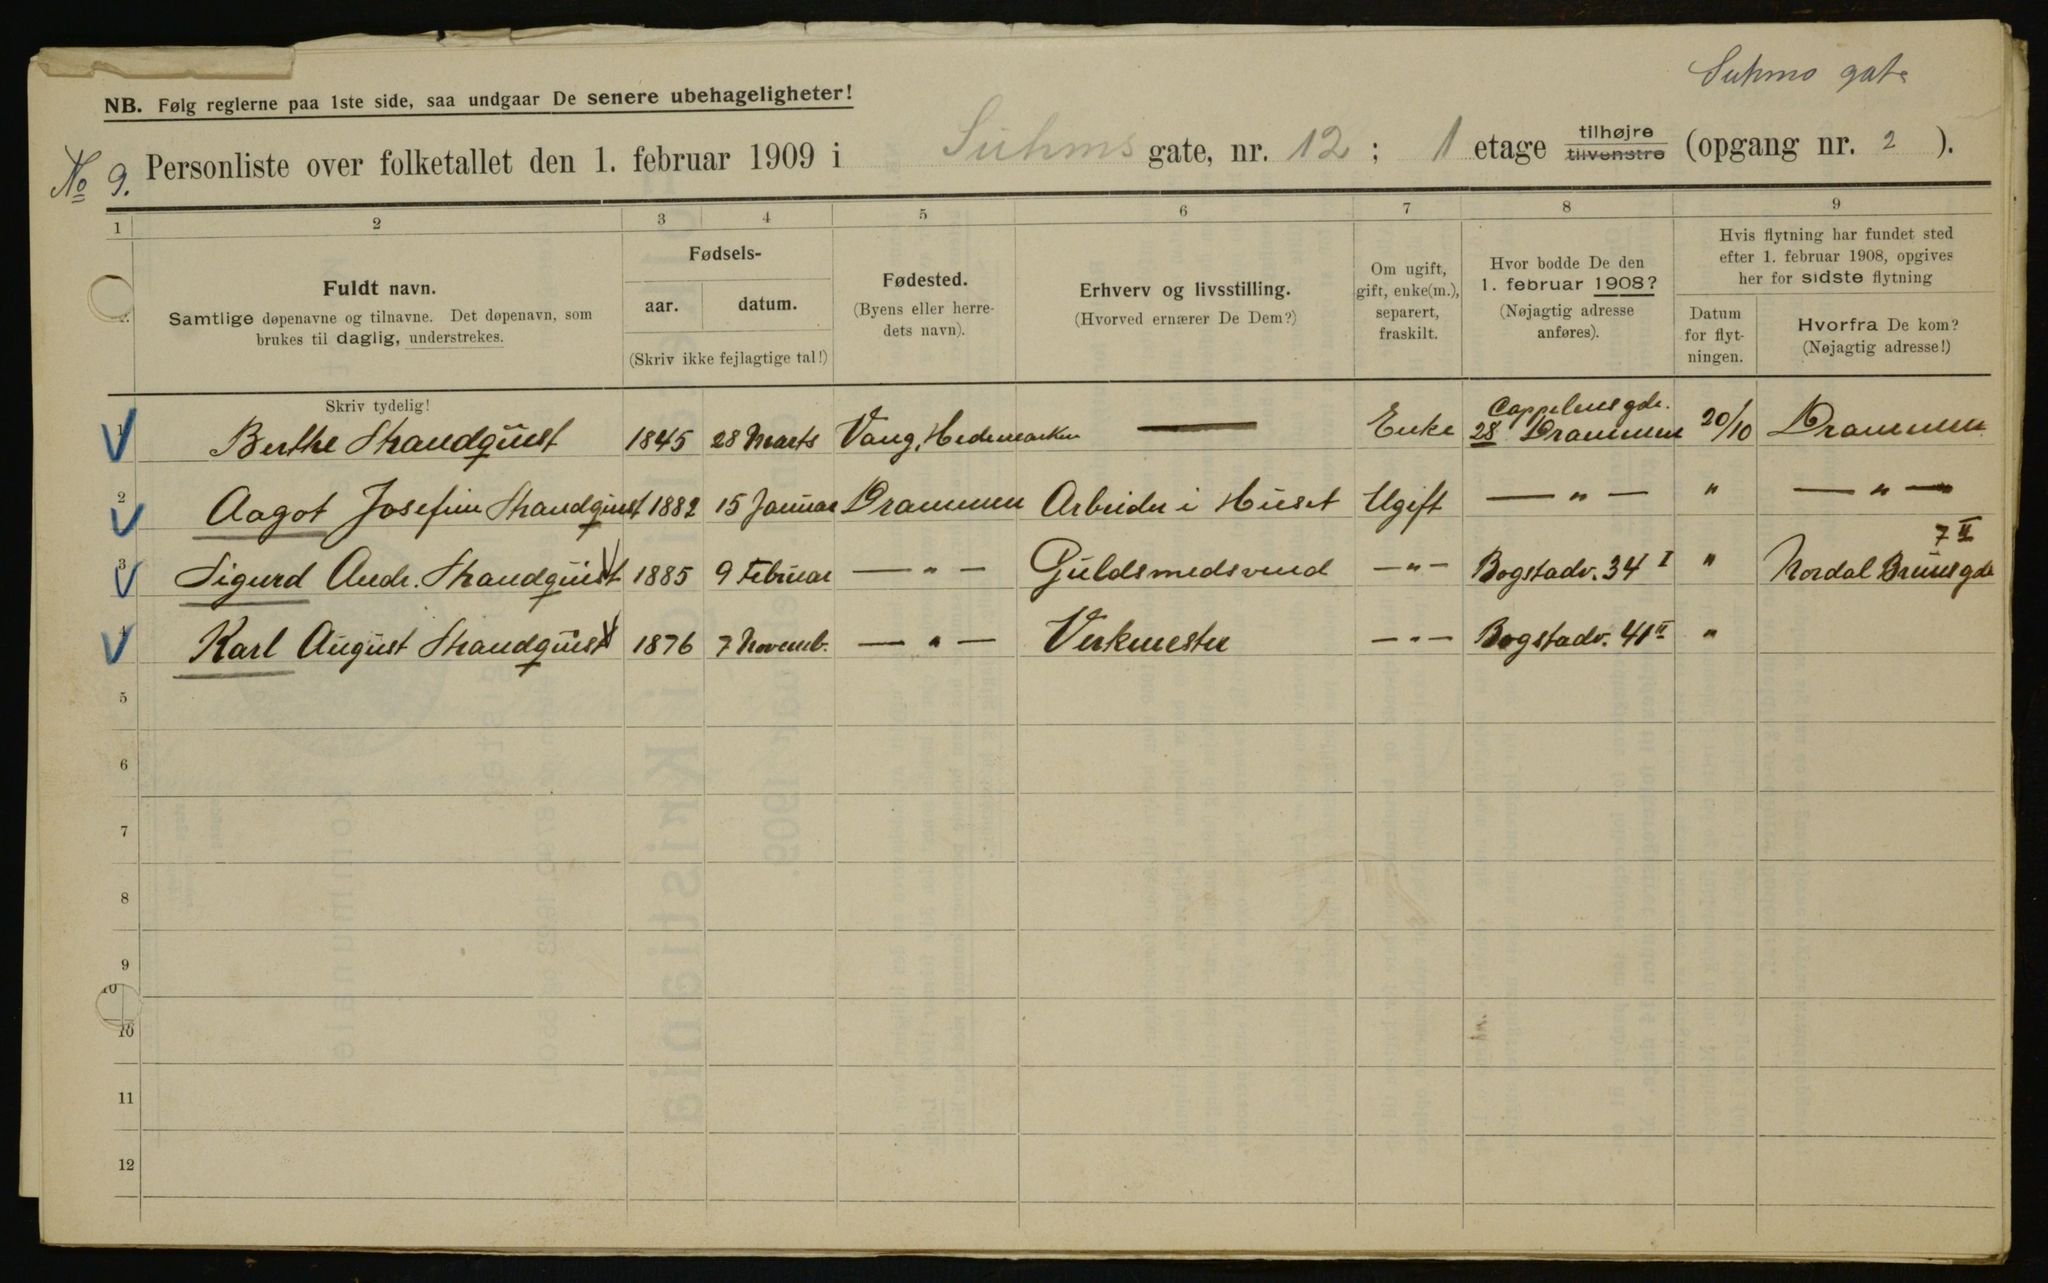 Suhms gate
NB. Følg reglerne paa 1ste side, saa undgaar De senere ubehageligheter!
No 9. Personliste over folketallet den 1. februar 1909 i Suhms gate, nr. 12 ; 1 etage tilhøjre tilvenstre (opgang nr. 2 ).
1 2 3 4 5 6 7 8 9
Fuldt navn.
Samtlige døpenavne og tilnavne. Det døpenavn, som
brukes til daglig, understrekes.
Skriv tydelig!
Fødsels-
aar. datum.
(Skriv ikke fejlagtige tal!)
Fødested.
(Byens eller herre-
dets navn).
Erhverv og livsstilling.
(Hvorved ernærer De Dem?)
Om ugift,
gift, enke(m.),
separert,
fraskilt.
Hvor bodde De den
1. februar 1908?
(Nøjagtig adresse
anføres).
Hvis flytning har fundet sted
efter 1. februar 1908, opgives
her for sidste flytning
Datum
for flyt-
ningen.
Hvorfra De kom?
(Nøjagtig adresse!)
Cappelens gde.
1 Berthe Strandquist 1845 28 Marts Vang, Hedemarken — Enke 28 Drammen 20/10 Drammen
2 Aagot Josefine Strandquist 1882 15 Januar Drammen Arbeider i Huset Ugift — " — " — " —
7 II
3 Sigurd Andr. Strandquist 1885 9 Februar — " — Guldsmedsvend — " — Bogstadv. 34 I " Nordal Bruns gde
4 Karl August Strandquist 1876 7 Novemb. — " — Verkmester — " — Bogstadv. 41 II "
5
6
7
8
9
10
10
11
12